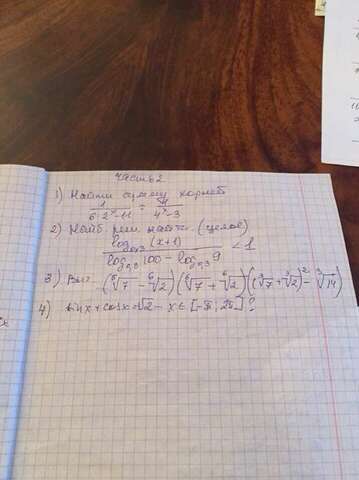 Часть 2
1) Найти сумму корней
1/(6·2ˣ-11) = 4/(4ˣ-3)
2) Наиб. реш найти (целое)
log₀,₃(x+1)/(log₀,₃100 - log₀,₃9) < 1
3) Выч. (⁶√7 - ⁶√2)(⁶√7 + ⁶√2)((³√7+³√2)² - ³√14)
4) sin x + cos x = √2 - x ∈ [-π; 2π] ?